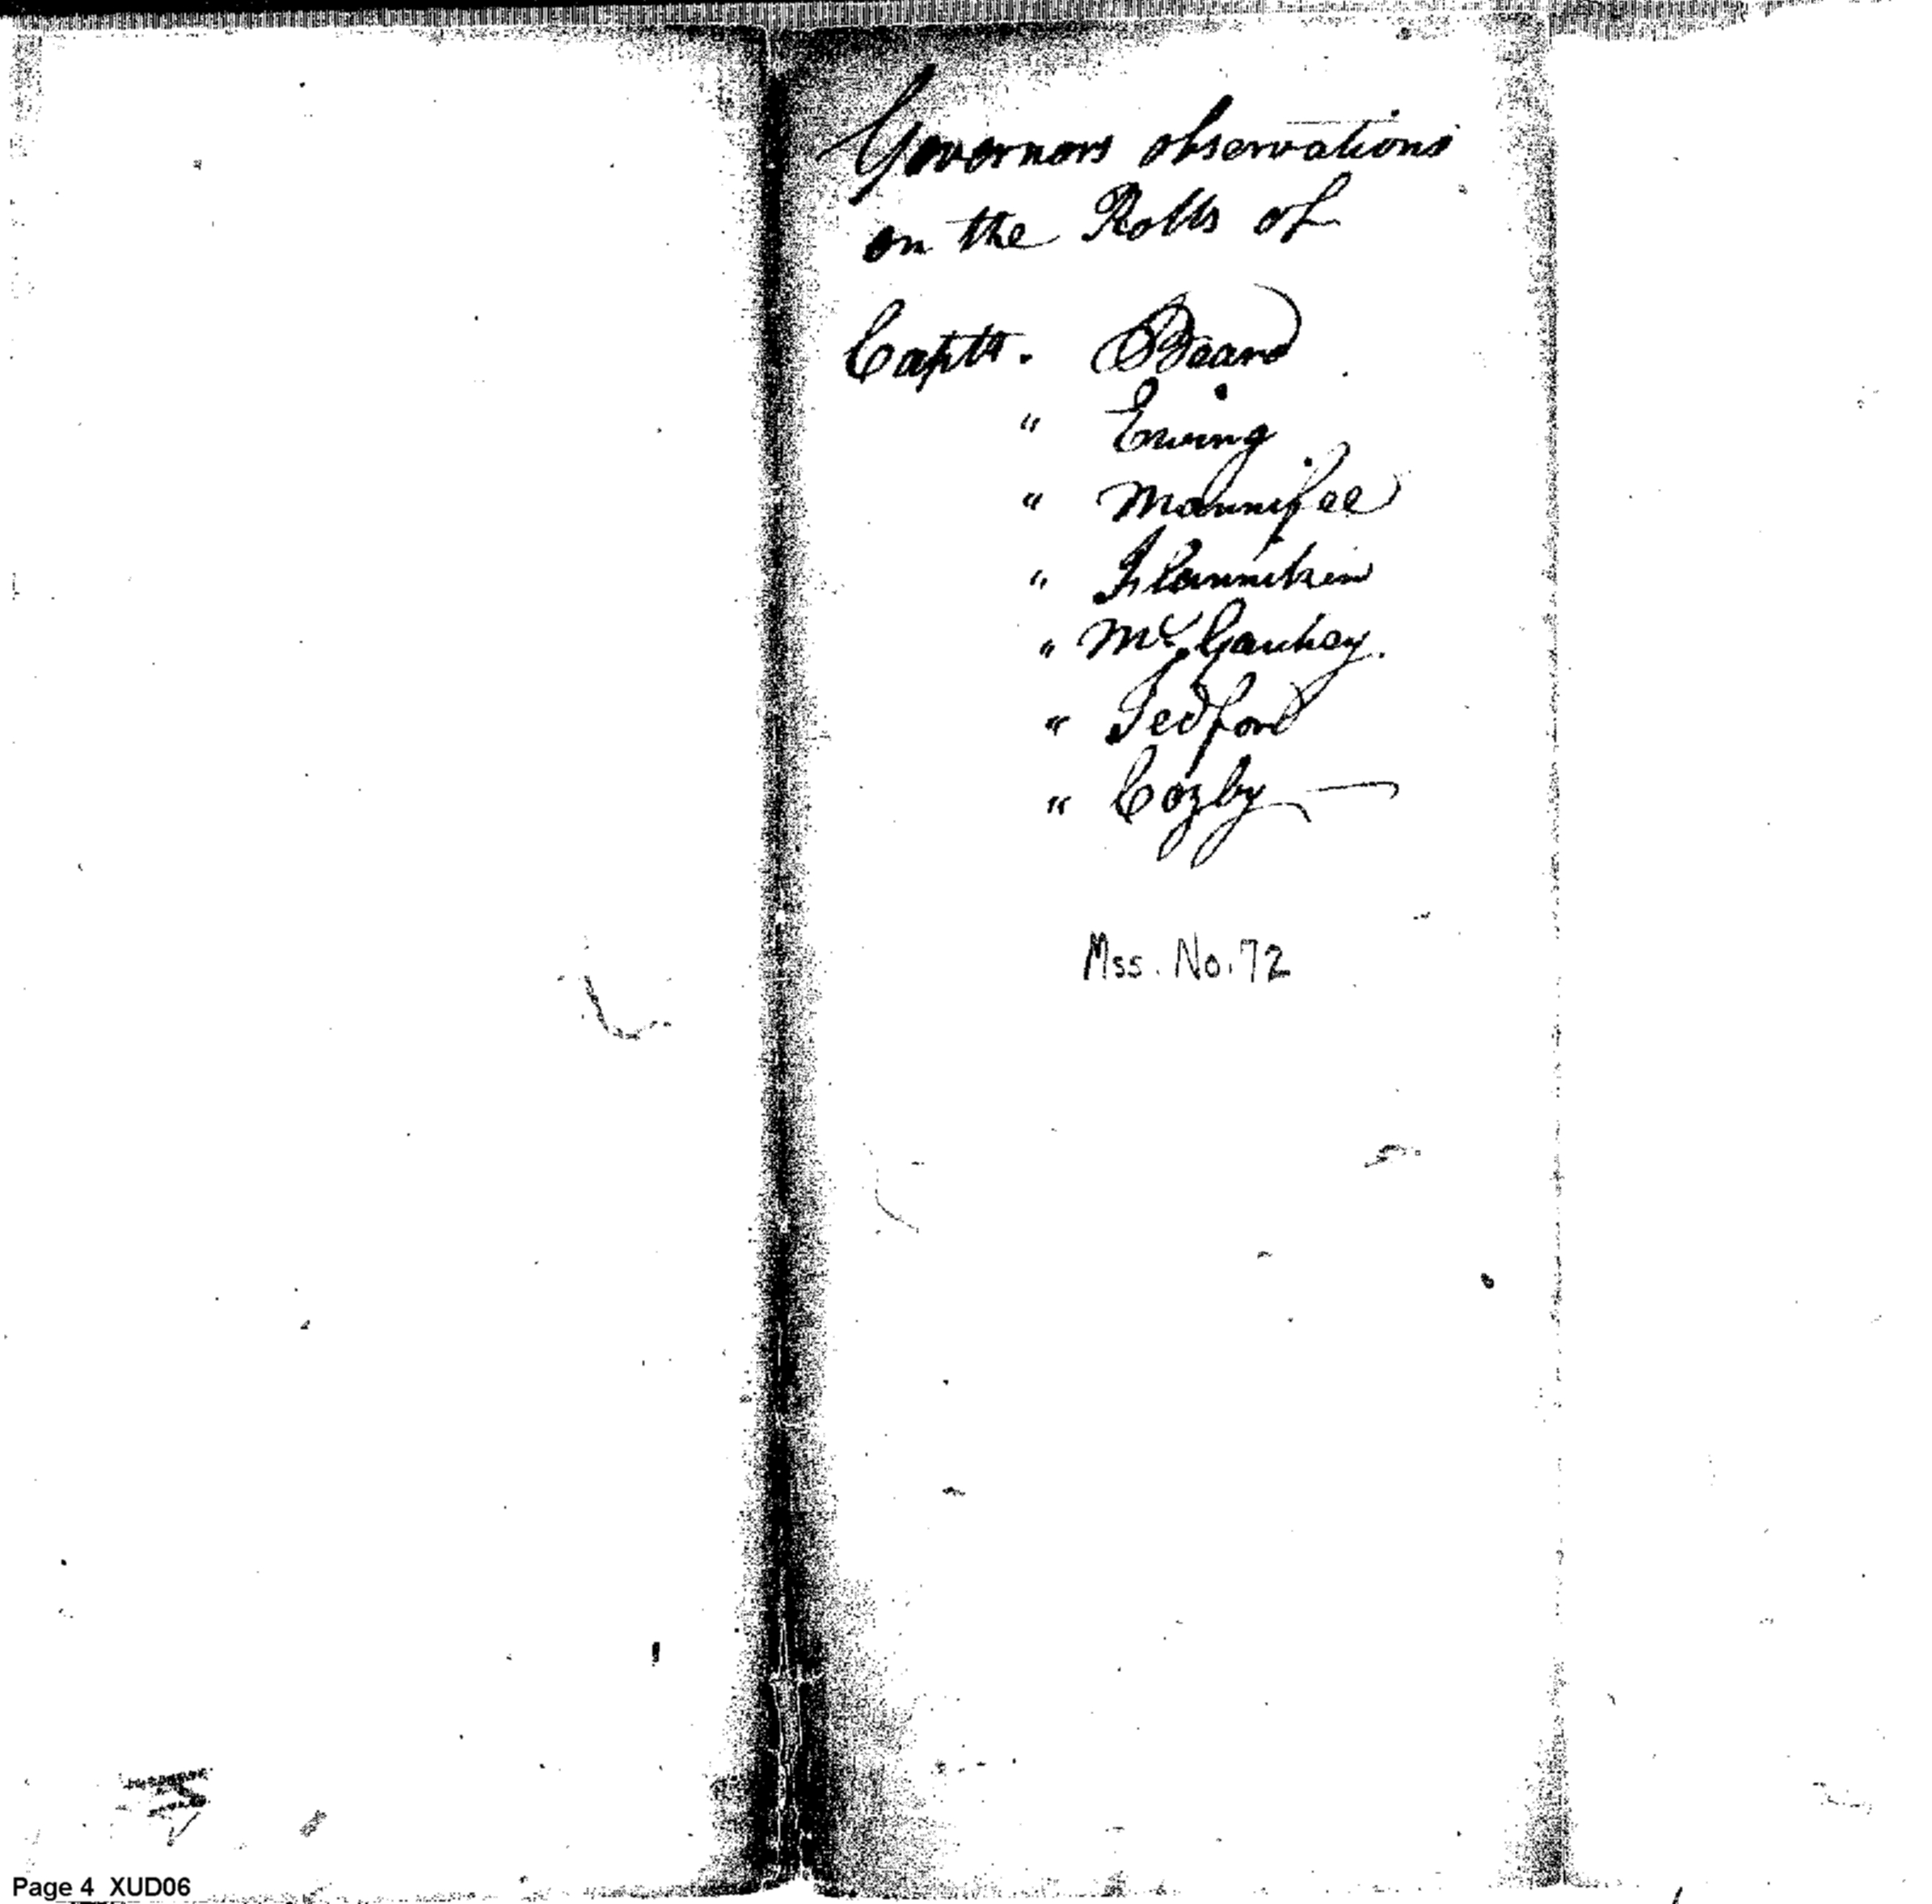 Governors observations
on the Rolls of
Capts. Beard
" Ewing
" Mannifee
" Flanniken
" Mc. Gauhey.
" Tedford
" Cozby
Mss. No. 72
Page 4 XUD06